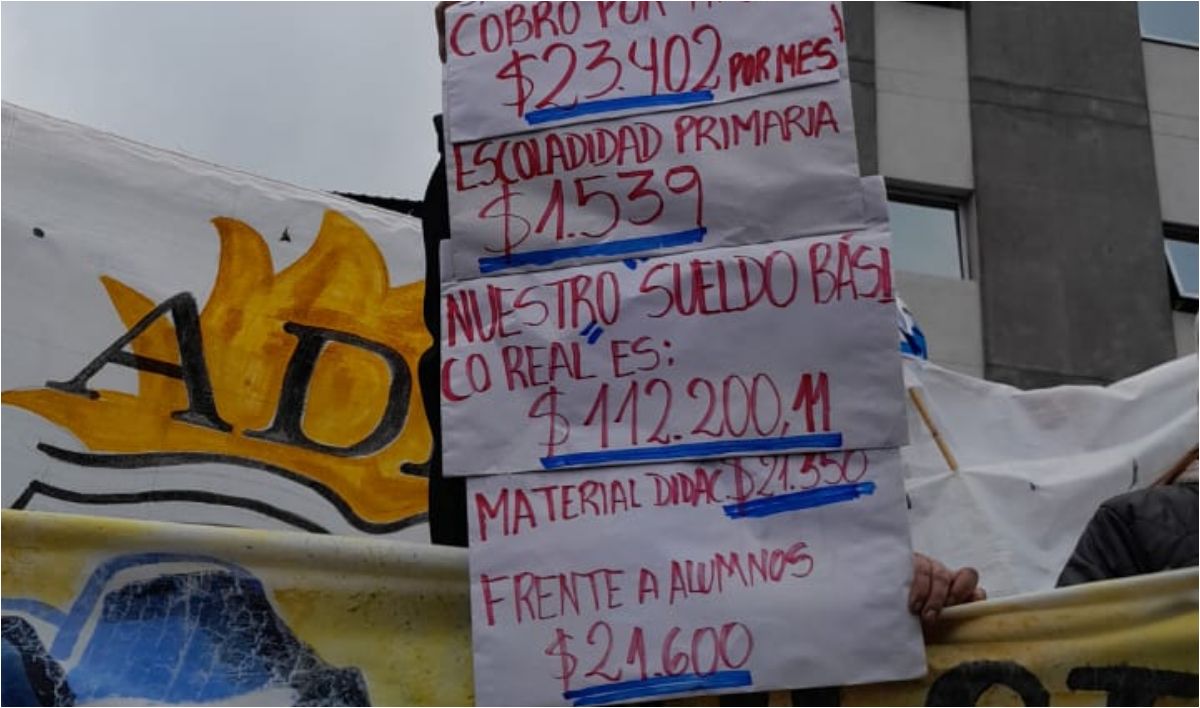 COBRO POR
$23.402 POR MES
ESCOLADIDAD PRIMARIA
$1.539
NUESTRO SUELDO BÁSI
CO REAL ES:
$112.200,11
MATERIAL DIDAC.$21.350
FRENTE A ALUMNOS
$21.600
AD